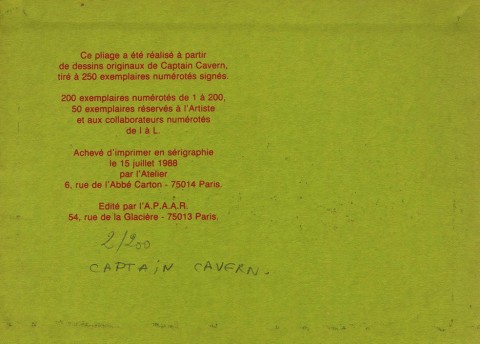 Ce pliage a été réalisé à partir
de dessins originaux de Captain Cavern,
tiré à 250 exemplaires numérotés signés.
200 exemplaires numérotés de 1 à 200,
50 exemplaires réservés à l'Artiste
et aux collaborateurs numérotés
de I à L.
Achevé d'imprimer en sérigraphie
le 15 juillet 1988
par l'Atelier
6, rue de l'Abbé Carton - 75014 Paris.
Edité par l'A.P.A.A.R.
54, rue de la Glacière - 75013 Paris.
2/200
CAPTAIN CAVERN.